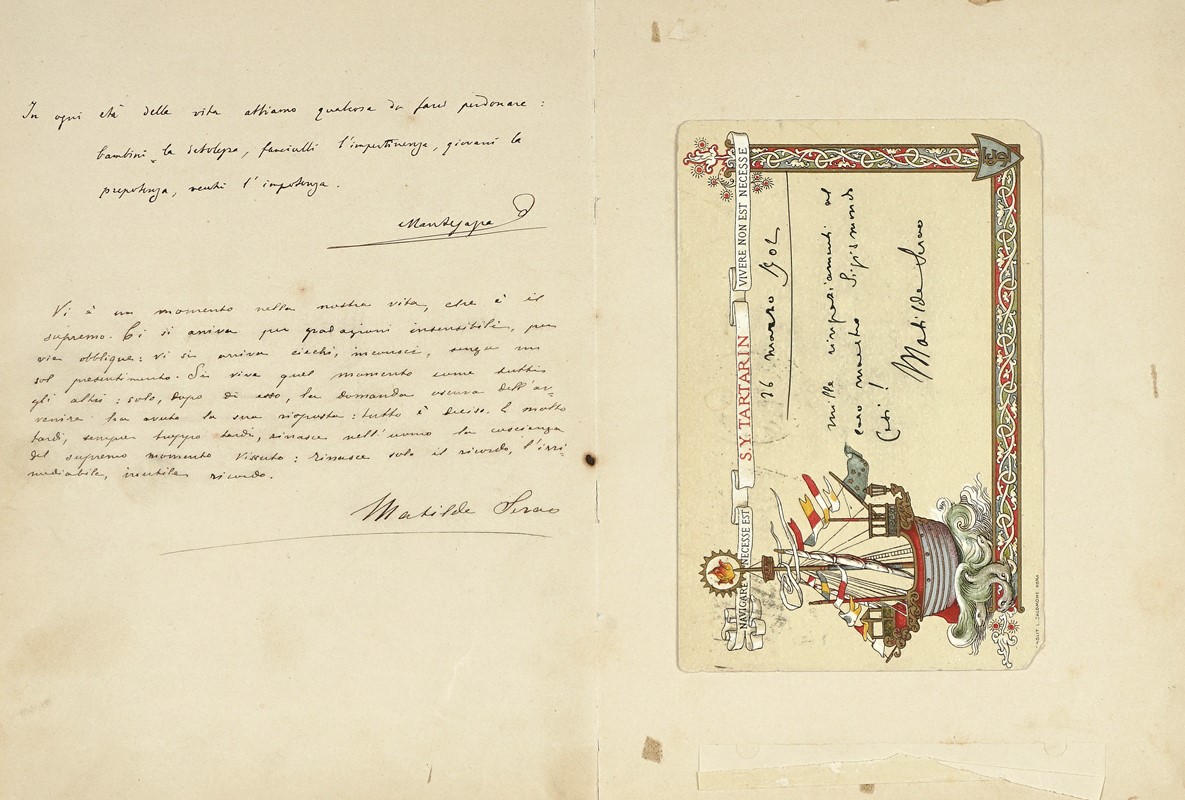 In ogni età della vita abbiamo qualcosa da farci perdonare:
bambini la debolezza, fanciulli l'impertinenza, giovani la
prepotenza, vecchi l'impotenza.
Mantegazza
Vi è un momento nella nostra vita, che è il
supremo. Ci si arriva per gradazioni insensibili, per
vie oblique: vi si arriva ciechi, inconsci, senza un
sol presentimento. Si vive quel momento come tutti
gli altri: solo, dopo di esso, la domanda oscura dell'av-
venire ha avuto la sua risposta: tutto è deciso. E molto
tardi, sempre troppo tardi, rinasce nell'uomo la coscienza
del supremo momento vissuto: rinasce solo il ricordo, l'irri-
mediabile, inutile ricordo.
Matilde Serao
NAVIGARE NECESSE EST
S.Y. TARTARIN
VIVERE NON EST NECESSE
26 marzo 902
mille ringraziamenti al
caro maestro Sigismondo
Cesi!
Matilde Serao
L. SALOMONE ROMA